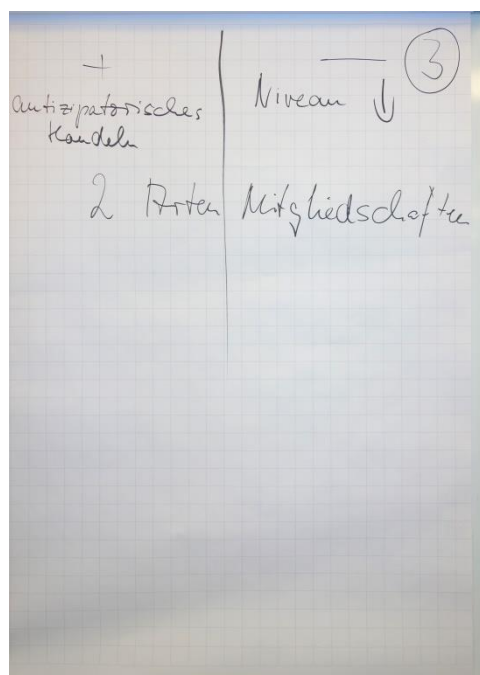 +
antizipatorisches
Handeln
— 3
Niveau ↓
2 Arten Mitgliedschaften